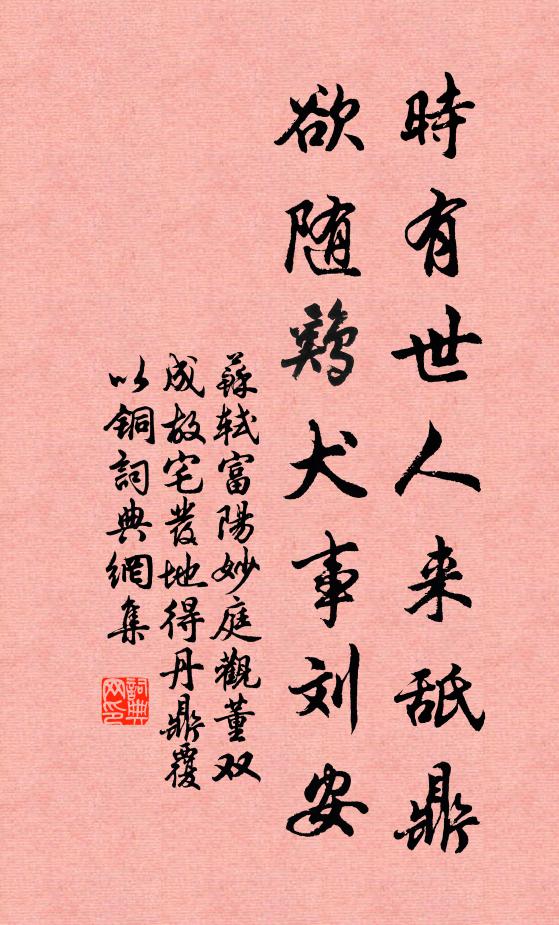 時有世人来舐鼎
欲随鷄犬事刘安
蘇轼富陽妙庭觀董双
成故宅發地得丹鼎覆
以銅詞典網集
詞典
网印